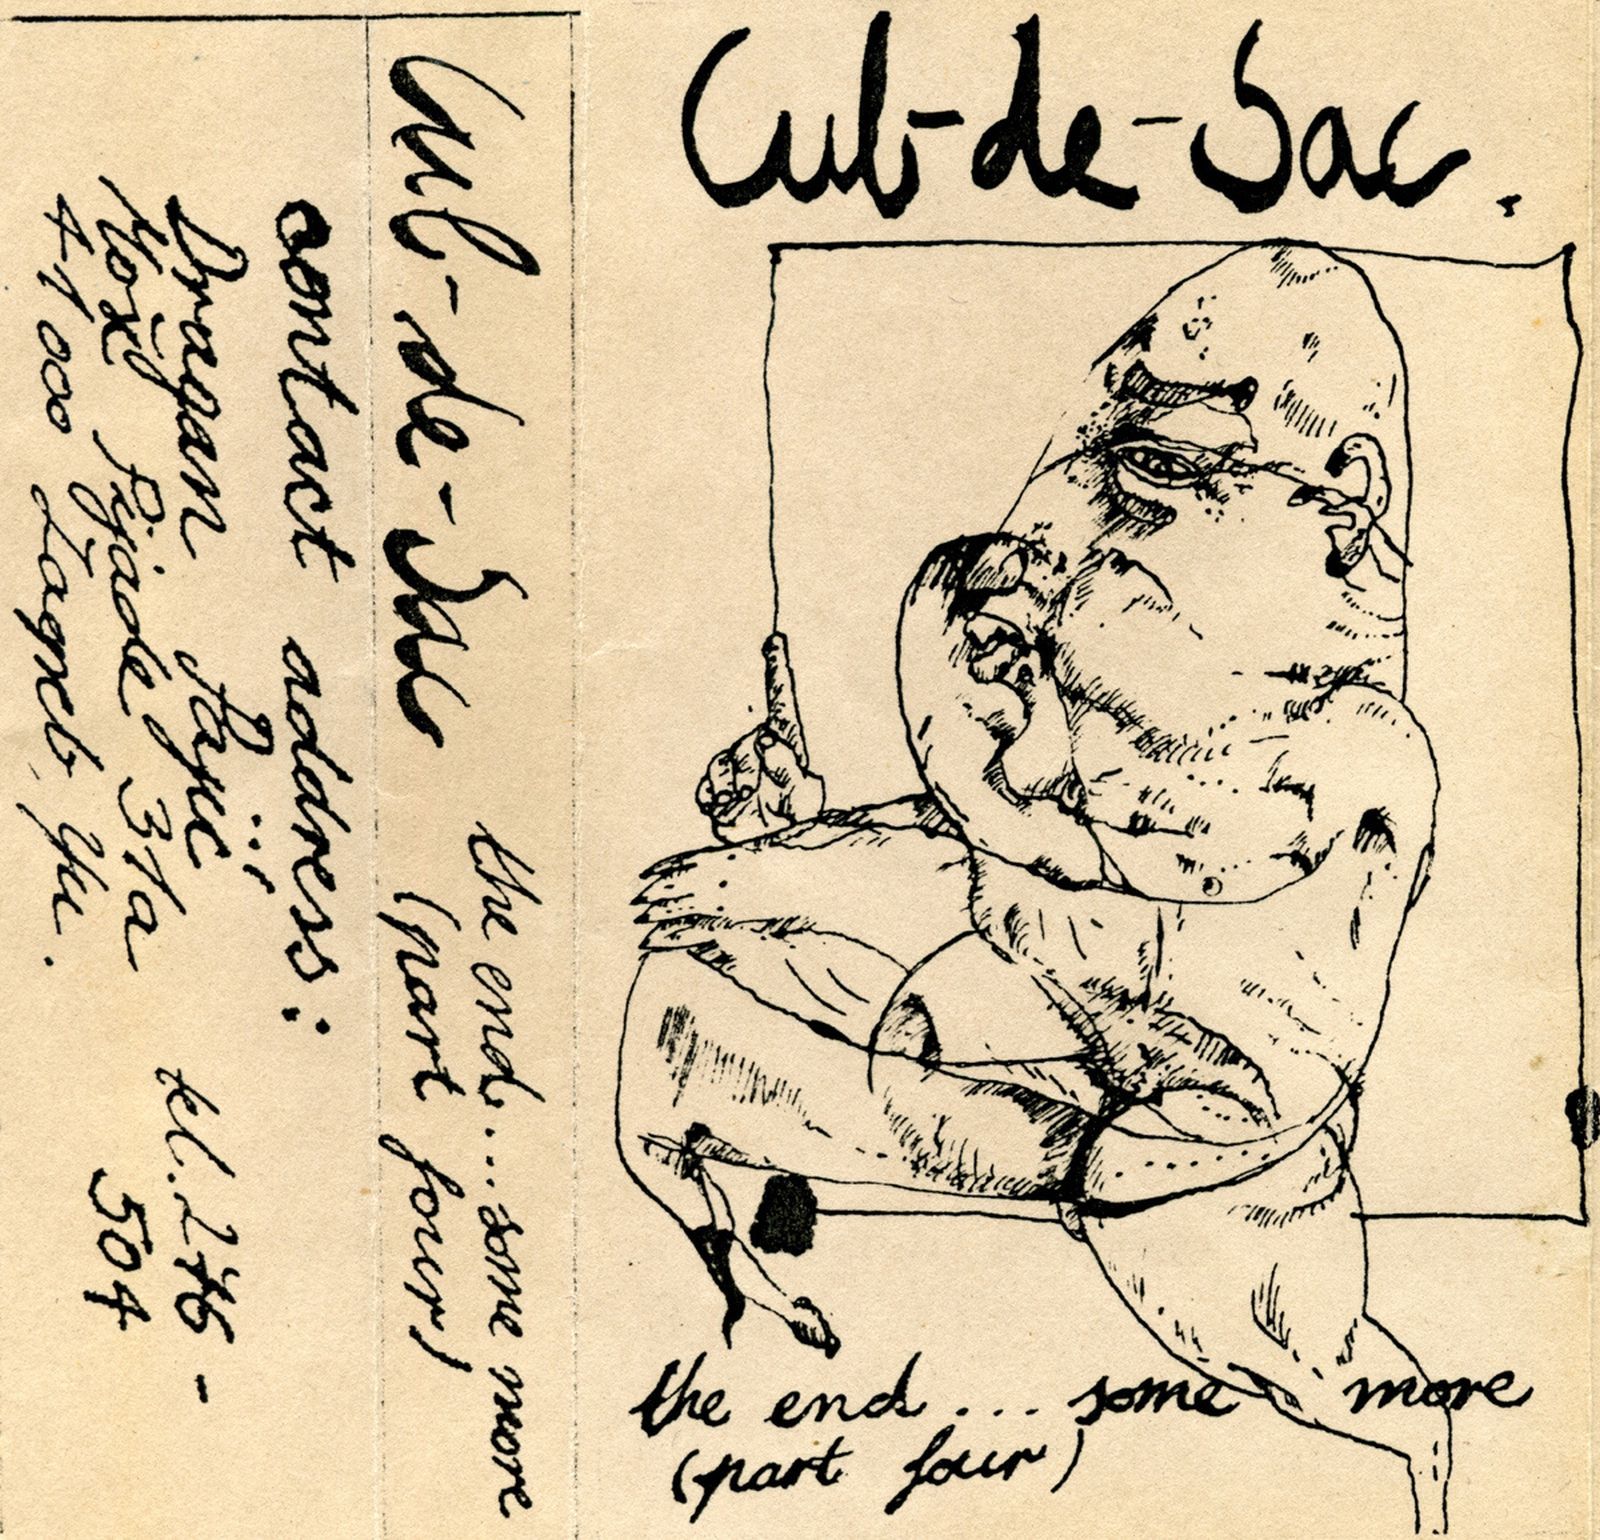 Cul-de-Sac.
the end... some more
(part four)
Cul-de-Sac
the end... some more
(part four)
contact address:
Dragan Pajić
tel. 276-
504
31a
41000 Zagreb, Yu.